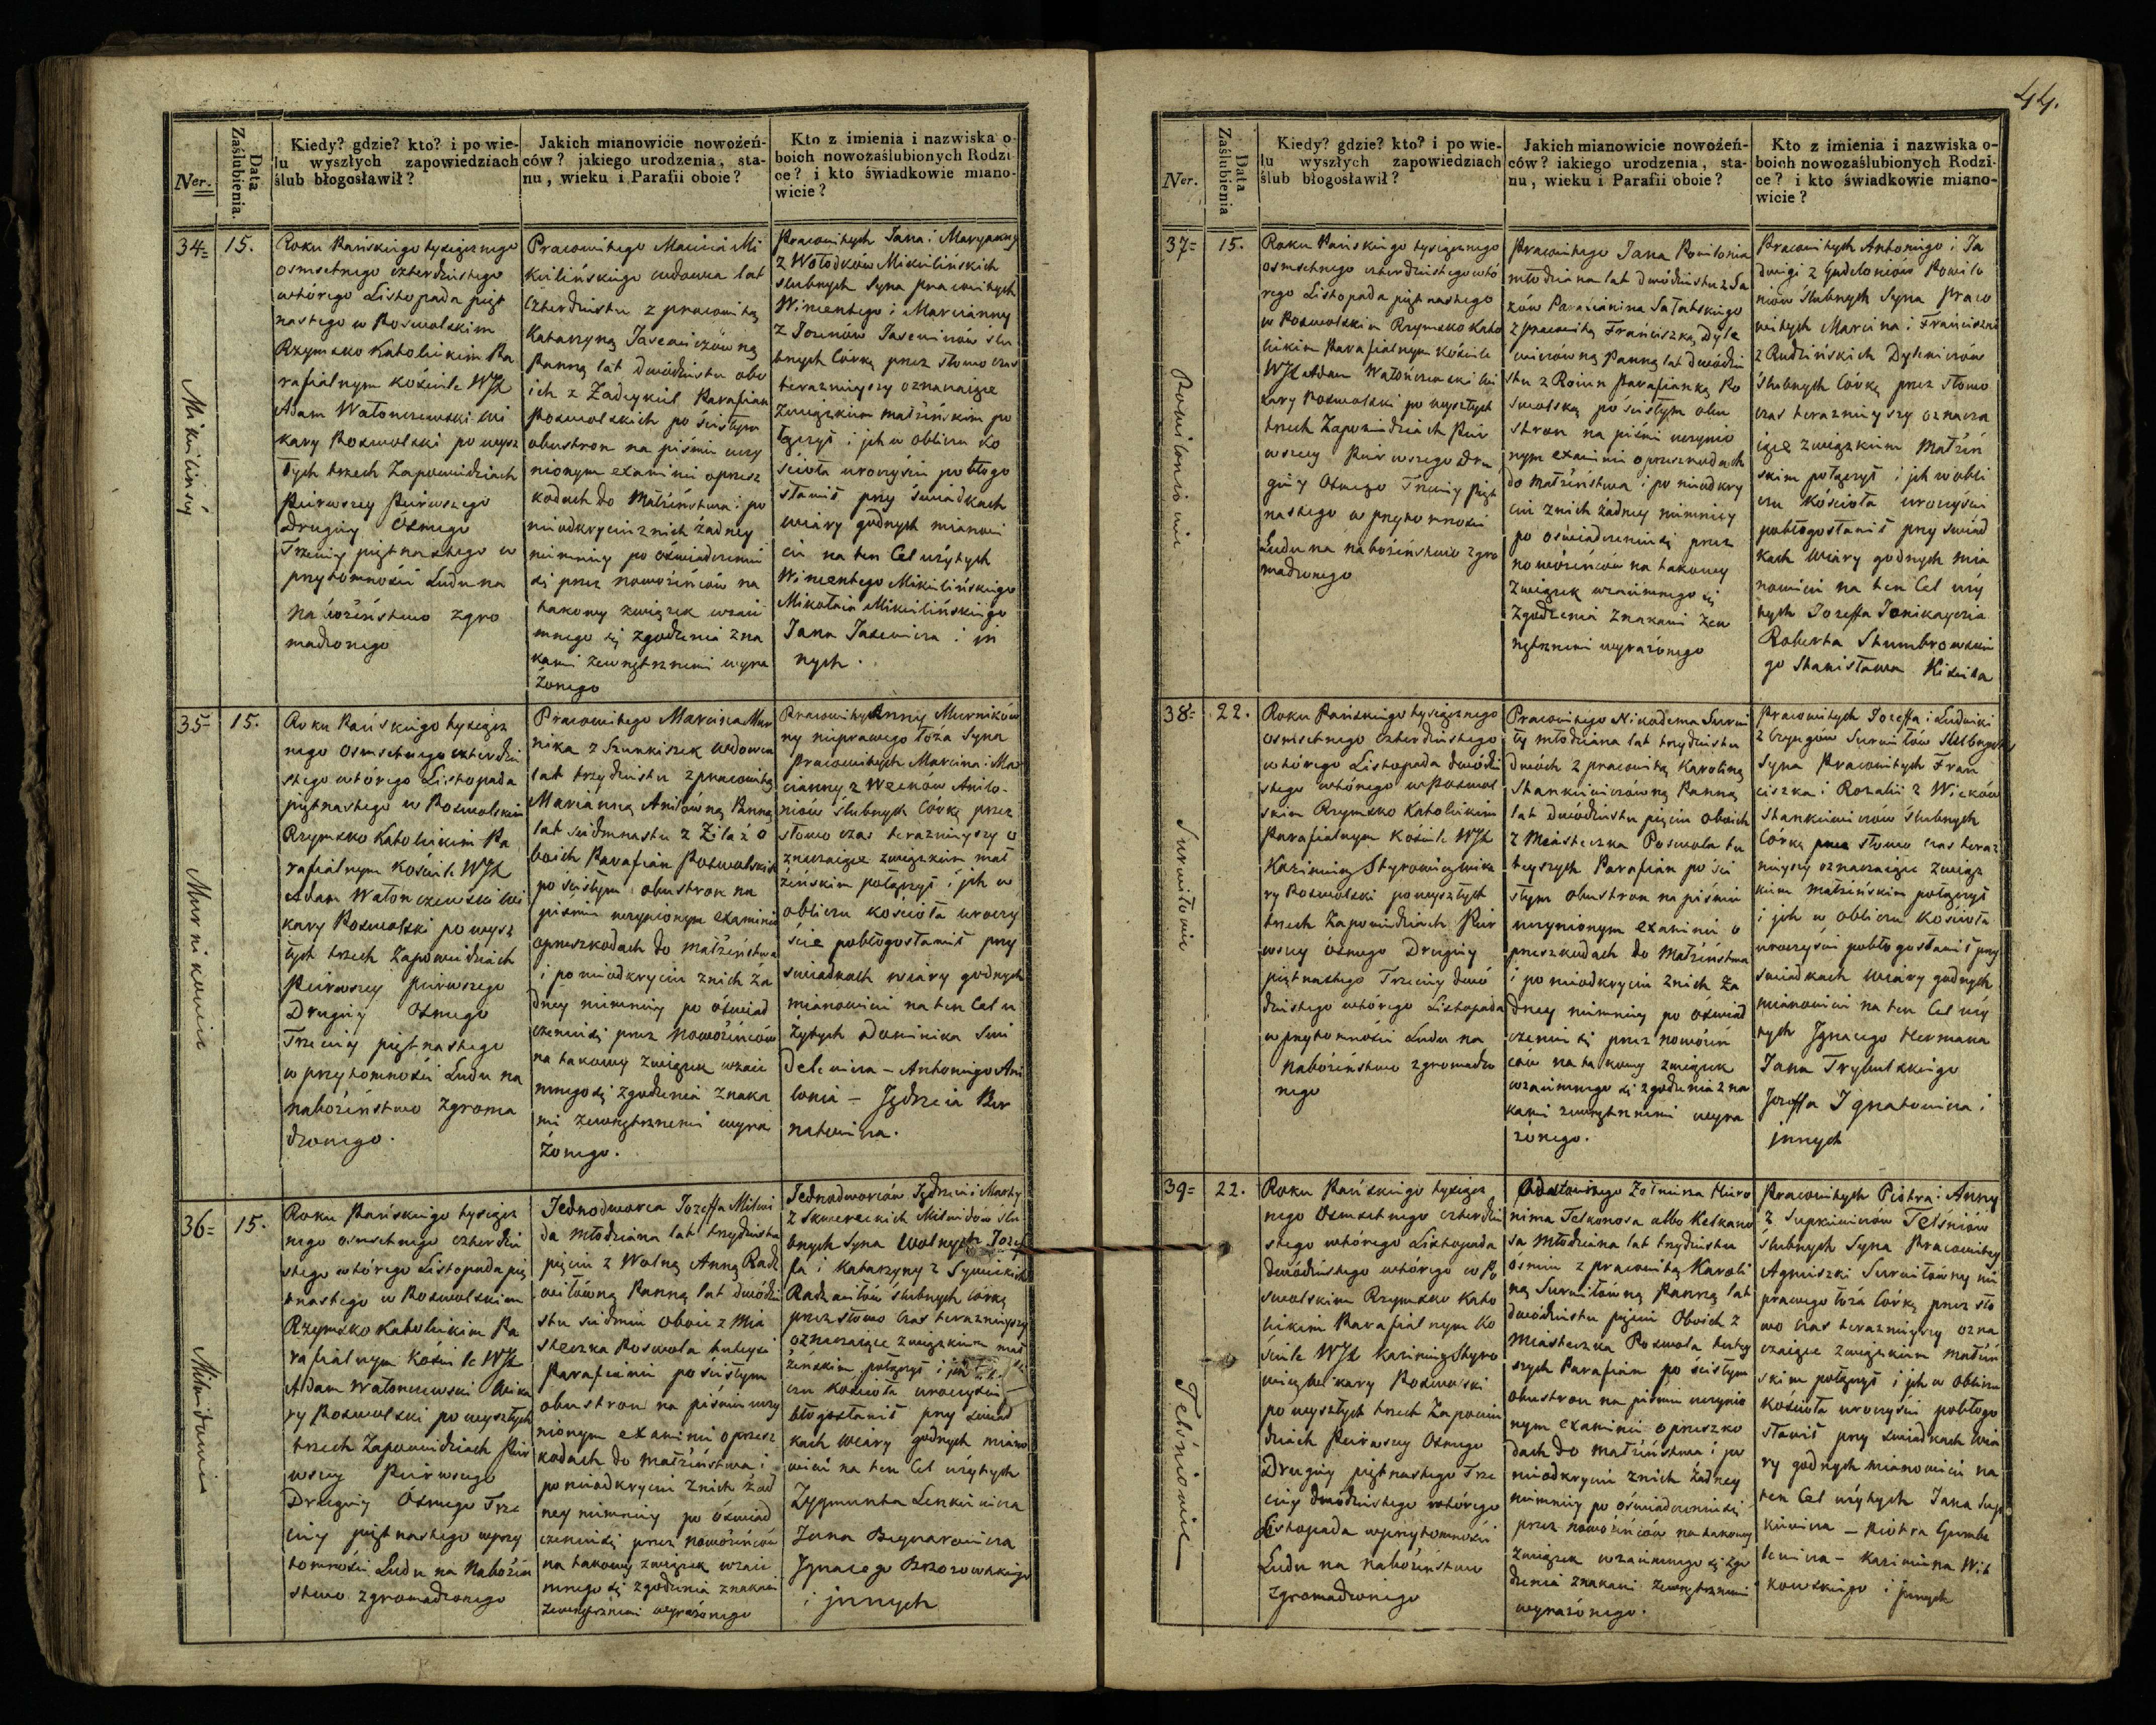 44.
Ner.
Data Zaślubienia.
Kiedy? gdzie? kto? i po wie-
lu wyszłych zapowiedziach
ślub błogosławił?
Jakich mianowicie nowożeń-
ców? jakiego urodzenia, sta-
nu, wieku i Parafii oboie?
Kto z imienia i nazwiska o-
boich nowozaślubionych Rodzi-
ce? i kto świadkowie miano-
wicie?
34
15.
Roku Pańskiego tysiącznego
osmsetnego czterdziestego
wtórego Listopada pięt
nastego w Poswolskim
Rzymsko Katolickim Pa
rafialnym kościele WJX
Adam Watonczewski Wi
kary Poswolski po wysz
łych trzech Zapowiedziach
Pierwszey Pierwszego
Drugiey Osmego
Trzeciey piętnastego w
przytomności Ludu na
nabożeństwo zgro
madzonego
Pracowitego Macieia Mi
kulińskiego wdowca lat
czterdziestu z pracowitą
Katarzyną
Panną lat dwódziestu obo
ich z Parafian
Poswolskich po ścisłym
obustron na piśmie uczy
nionym examinie oprzesz
kodach do Małżeństwa i po
nieodkryciu z nich żadney
nimniey po oświadczeniu
się przez nowożeńców na
takowy związek wzaie
mnego się zgodzenia zna
kami zewnętrznemi wyra
żonego
Pracowitych Jana i Maryanny
z Wołodków Mikulińskich
ślubnych Syna pracowitych
Wincentego i Marcianny
z ślu
bnych Córkę przez słowo czas
terazniyszy oznaczaiące
Związkiem małżeńskim po
łączył i ich w obliczu Ko
ścioła uroczyście pobłogo
sławił przy świadkach
wiary godnych mianowi
cie na ten Cel użytych
Wincentego Mikulińskiego
Mikołaia Mikulińskiego
Jana Jasewicza i in
nych.
Mikulińscy
35
15.
Roku Pańskiego tysiącz
nego osmsetnego czterdzie
stego wtórego Listopada
piętnastego w Poswolskim
Rzymsko Katolickim Pa
rafialnym kościele WJX
Adam Watonczewski Wi
kary Poswolski po wysz
łych trzech Zapowiedziach
Pierwszey pierwszego
Drugiey Osmego
Trzeciey piętnastego
w przytomności Ludu na
nabożeństwo zgroma
dzonego.
Pracowitego Marcina Mur
nika z Szunkiszek wdowca
lat trzydziestu z pracowitą
Marianną Aniłówną Panną
lat siedmnastu z Żilaż o
boich Parafian Poswolskich
po ścisłym obustron na
piśmie uczynionym examinie
oprzeszkodach do małżeństwa
i po nieodkryciu z nich ża
dney nimniey po oświad
czeniu się przez nowożeńców
na takowy związek wzaie
mnego się zgodzenia znaka
mi zewnętrznemi wyra
żonego.
Pracowitych Anny Murników
ny nieprawego łoża Syna
Pracowitych Marcina i Mar
cianny z Wecnów Aniło-
niów ślubnych Córkę przez
słowo czas terazniyszy o
znaczaiące związkiem mał
żeńskim połączył i ich w
obliczu kościoła uroczy
ście pobłogosławił przy
świadkach wiary godnych
mianowicie na ten Cel u
żytych Dominika
Antoniego Ani
łonia – Jędrzeia Ber
natowicza.
Murnikowie
36
15.
Roku Pańskiego tysiącz
nego osmsetnego czterdzie
stego wtórego Listopada pię
tnastego w Poswolskim
Rzymsko Katolickim Pa
rafialnym kościele WJX
Adam Watonczewski Wika
ry Poswolski po wyszłych
trzech Zapowiedziach Pier
wszey Pierwszego
Drugiey Osmego Trze
ciey piętnastego w przy
tomności Ludu na Nabożeń
stwo zgromadzonego
Jednodworca Jozeffa Milwi
da młodziana lat trzydziestu
pięciu z Wolną Anną Radz
wiłówną Panną lat dwódzie
stu siedmiu oboie z Mia
steczka Poswola tuteysi
Parafianie po ścisłym
obustron na piśmie uczy
nionym examinie o przesz
kodach do małżeństwa i
po nieodkryciu z nich żad
ney nimniey po oświad
czeniu się przez nowożeńców
na takowy związek wzaie
mnego się zgodzenia znakami
zewnętrznemi wyrażonego
Jednodworców Jędrzeia i Marty
z Skwereckich Milwidów ślu
bnych Syna Wolnych Jozef
fa i Katarzyny z
Radzwiłów ślubnych córkę
przez słowo czas terazniyszy
oznaczaiące związkiem mał
żeńskim połączył i ich
czu kościoła uroczyście
błogosławił przy świad
kach wiary godnych miano
wicie na ten Cel użytych
Zygmunta Lenkiewicza
Jana
Ignacego Brzozowskiego
i innych
Milwidowie
Ner.
Data Zaślubienia
Kiedy? gdzie? kto? i po wie-
lu wyszłych zapowiedziach
ślub błogosławił?
Jakich mianowicie nowożeń-
ców? iakiego urodzenia, sta-
nu, wieku i Parafii oboie?
Kto z imienia i nazwiska o-
boich nowozaślubionych Rodzi-
ce? i kto świadkowie miano-
wicie?
37
15.
Roku Pańskiego tysiącznego
osmsetnego czterdziestego wtó
rego Listopada piętnastego
w Poswolskim Rzymsko Kato
lickim Parafialnym kościele
WJX Adam Watończewski Wi
kary Poswolski po wyszłych
trzech Zapowiedziach Pier
wszey Pierwszego Dru
giey Osmego Trzeciey pięt
nastego w przytomności
Ludu na nabożeństwo zgro
madzonego
Pracowitego Jana Powilonia
młodziana lat dwódziestu z Sa
ków Parafianina Sałatskiego
z pracowitą Franciszką Dyle
wiczówną Panną lat dwódzie
stu z Parafianką Po
swolską po ścisłym obu
stron na piśmie uczynio
nym examinie oprzeszkodach
do małżeństwa i po nieodkry
ciu z nich żadney nimniey
po oświadczeniu się przez
nowożeńców na takowy
związek wzaiemnego się
zgodzenia znakami zew
nętrznemi wyrażonego
Pracowitych Antoniego i Ja
dwigi z Gudeloniów Powilo
niów ślubnych Syna Praco
witych Marcina i Franciszki
z Rudzińskich Dylewiczów
ślubnych Córkę przez słowo
czas terazniyszy oznacza
iące związkiem Małżeń
skim połączył i ich w obli
czu Kościoła uroczyście
pobłogosławił przy świad
kach wiary godnych mia
nowicie na ten Cel uży
tych Jozeffa
Roberta Stumbrowskie
go Stanisława
Powiłoniowie
38
22.
Roku Pańskiego tysiącznego
osmsetnego czterdziestego
wtórego Listopada dwódzie
stego wtórego w Poswol
skim Rzymsko Katolickim
Parafialnym Kościele WJX
Kazimierz Styrowicz Wika
ry Poswolski po wyszłych
trzech Zapowiedziach Pier
wszey osmego Drugiey
piętnastego Trzeciey dwó
dziestego wtórego Listopada
w przytomności Ludu na
nabożeństwo zgromadzo
nego
Pracowitego Nikodema Surwi
ły młodziana lat trzydziestu
dwóch z pracowitą Karoliną
Stankiewiczówną Panną
lat dwódziestu pięciu oboich
z Miasteczka Poswola tu
teyszych Parafian po ści
słym obustron na piśmie
uczynionym examinie o
przeszkodach do Małżeństwa
i po nieodkryciu z nich ża
dney nimniey po oświad
czeniu się przez nowożeń
ców na takowy związek
wzaiemnego się zgodzenia zna
kami zewnętrznemi wyra
żonego.
Pracowitych Jozeffa i Ludwiki
z Surwiłów ślubnych
Syna Pracowitych Fran
ciszka i Rozalii z Wicków
Stankiewiczów ślubnych
Córkę przez słowo czas teraz
nieyszy oznaczaiące związ
kiem małżeńskim połączył
i ich w obliczu kościoła
uroczyście pobłogosławił przy
świadkach wiary godnych
mianowicie na ten Cel uży
tych Ignacego Hermana
Jana Trybulskiego
Jozeffa Ignatowicza i
innych
Surwiłowie
39
22.
Roku Pańskiego tysiącz
nego Osmsetnego czterdzie
stego wtórego Listopada
dwódziestego wtórego w Po
swolskim Rzymsko Kato
lickim Parafialnym Ko
ściele WJX Kazimierz Styro
wicz Wikary Poswolski
po wyszłych trzech Zapowie
dziach Pierwszey Osmego
Drugiey piętnastego Trze
ciey dwódziestego wtórego
Listopada w przytomności
Ludu na nabożeństwo
zgromadzonego
Odstawnego Żołnierza Hiero
nima Telkonosa albo Kelkano
sa Młodziana lat trzydziestu
ósmiu z pracowitą Karoli
ną Surwiłówną Panną lat
dwódziestu pięciu Oboich z
Miasteczka Poswola tutey
szych Parafian po ścisłym
obustron na piśmie uczynio
nym examinie o przeszko
dach do Małżeństwa i po
nieodkryciu z nich żadney
nimniey po oświadczeniu się
przez nowożeńców na takowy
związek wzaiemnego się zgo
dzenia znakami zewnętrznemi
wyrażonego.
Pracowitych Piotra i Anny
z Supkiewiczów Telśniów
ślubnych Syna Pracowitey
Agnieszki Surwiłówny nie
prawego łoża Córkę przez sło
wo czas terazniyszy ozna
czaiące związkiem małżeń
skim połączył i ich w obliczu
Kościoła uroczyście pobłogo
sławił przy świadkach wia
ry godnych mianowicie na
ten Cel użytych Jana Sup
kiewicza – Piotra Gumbe
lewicza – Kazimierza Wit
kowskiego i innych
Telśniowie